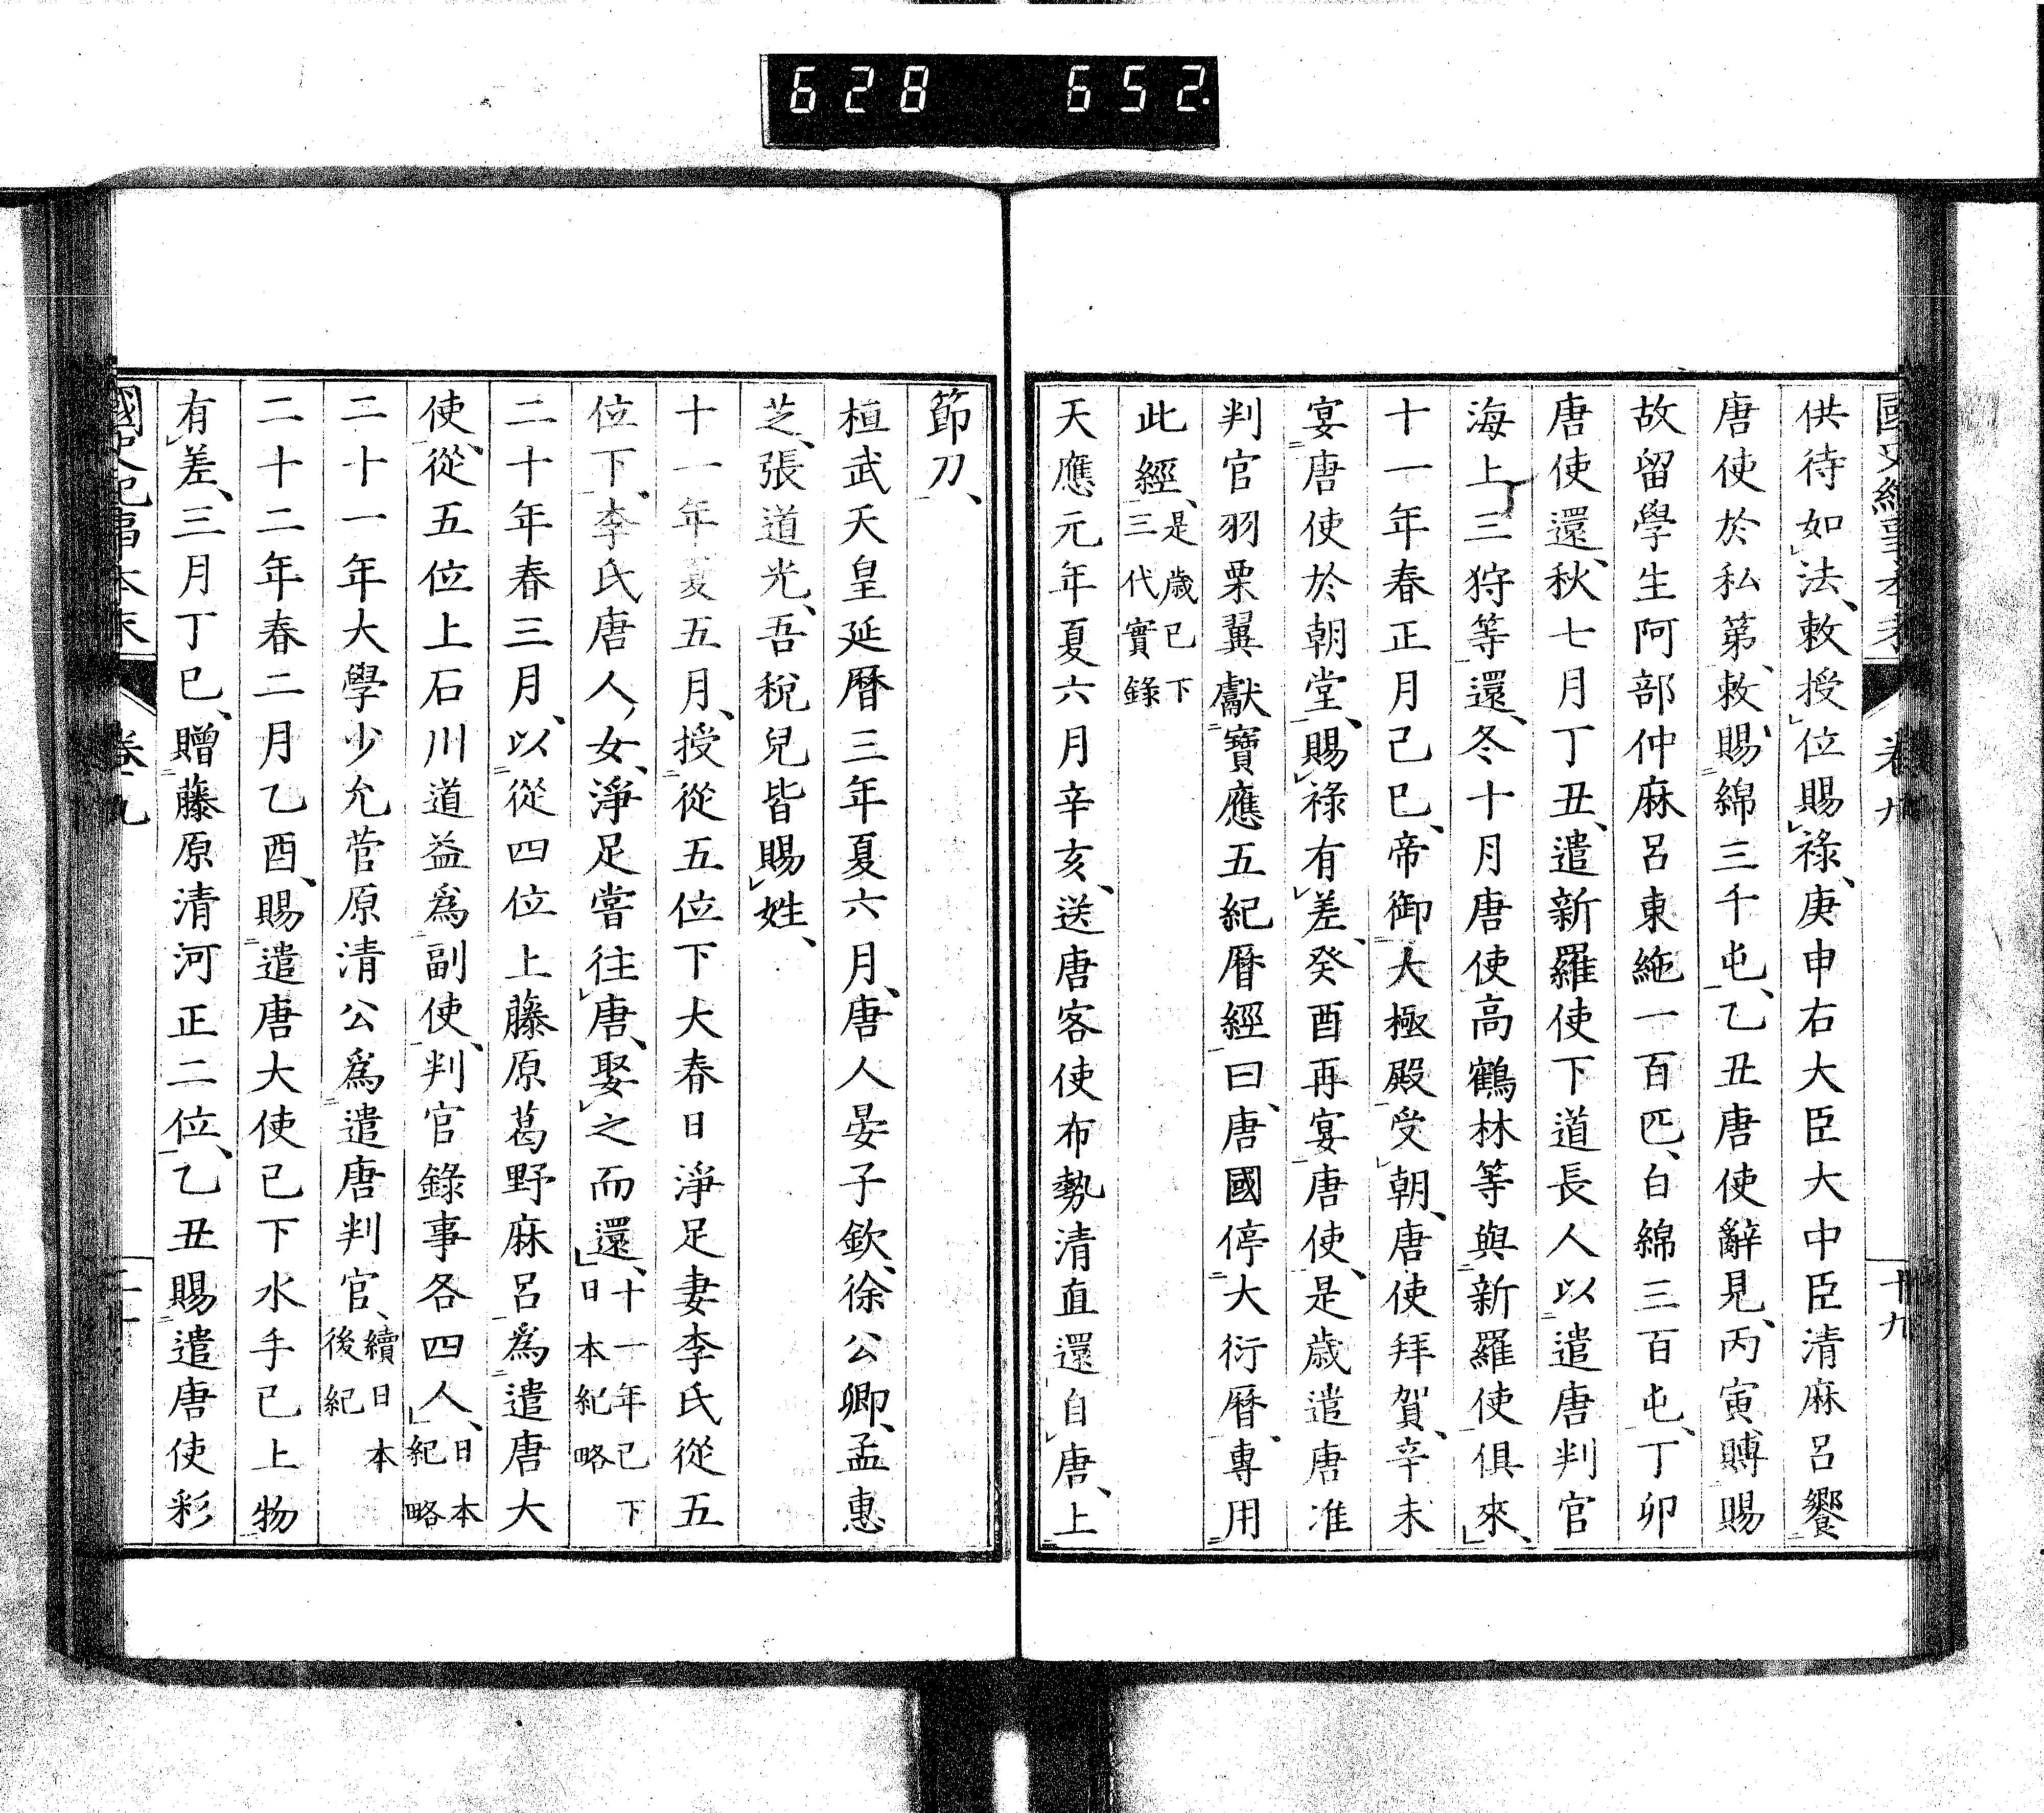 628 652
供待如法、敕授位賜祿、庚申右大臣大中臣清麻呂饗
唐使於私第、敕賜綿三千屯、乙丑唐使辭見、丙寅賻賜
故留學生阿部仲麻呂東絁一百匹、白綿三百屯、丁卯
唐使還、秋七月丁丑、遣新羅使下道長人以遣唐判官
海上三狩等還、冬十月唐使高鶴林等與新羅使俱來、
十一年春正月己巳、帝御大極殿受朝、唐使拜賀、辛未
宴唐使於朝堂、賜祿有差、癸酉再宴唐使、是歲遣唐准
判官羽栗翼獻寶應五紀曆經曰、唐國停大衍曆、專用
此經、是歲已下三代實錄
天應元年夏六月辛亥、送唐客使布勢清直還自唐、上
節刀、
桓武天皇延曆三年夏六月、唐人晏子欽、徐公卿、孟惠
芝、張道光、吾稅兒皆賜姓、
十一年夏五月、授從五位下大春日淨足妻李氏從五
位下、李氏唐人女、淨足嘗往唐、娶之而還、十一年已下日本紀略
二十年春三月、以從四位上藤原葛野麻呂爲遣唐大
使、從五位上石川道益爲副使、判官錄事各四人、日本紀略
二十一年大學少允菅原清公爲遣唐判官、續日本後紀
二十二年春二月乙酉、賜遣唐大使已下水手已上物
有差、三月丁巳、贈藤原清河正二位、乙丑賜遣唐使彩
國史紀事本末 卷九